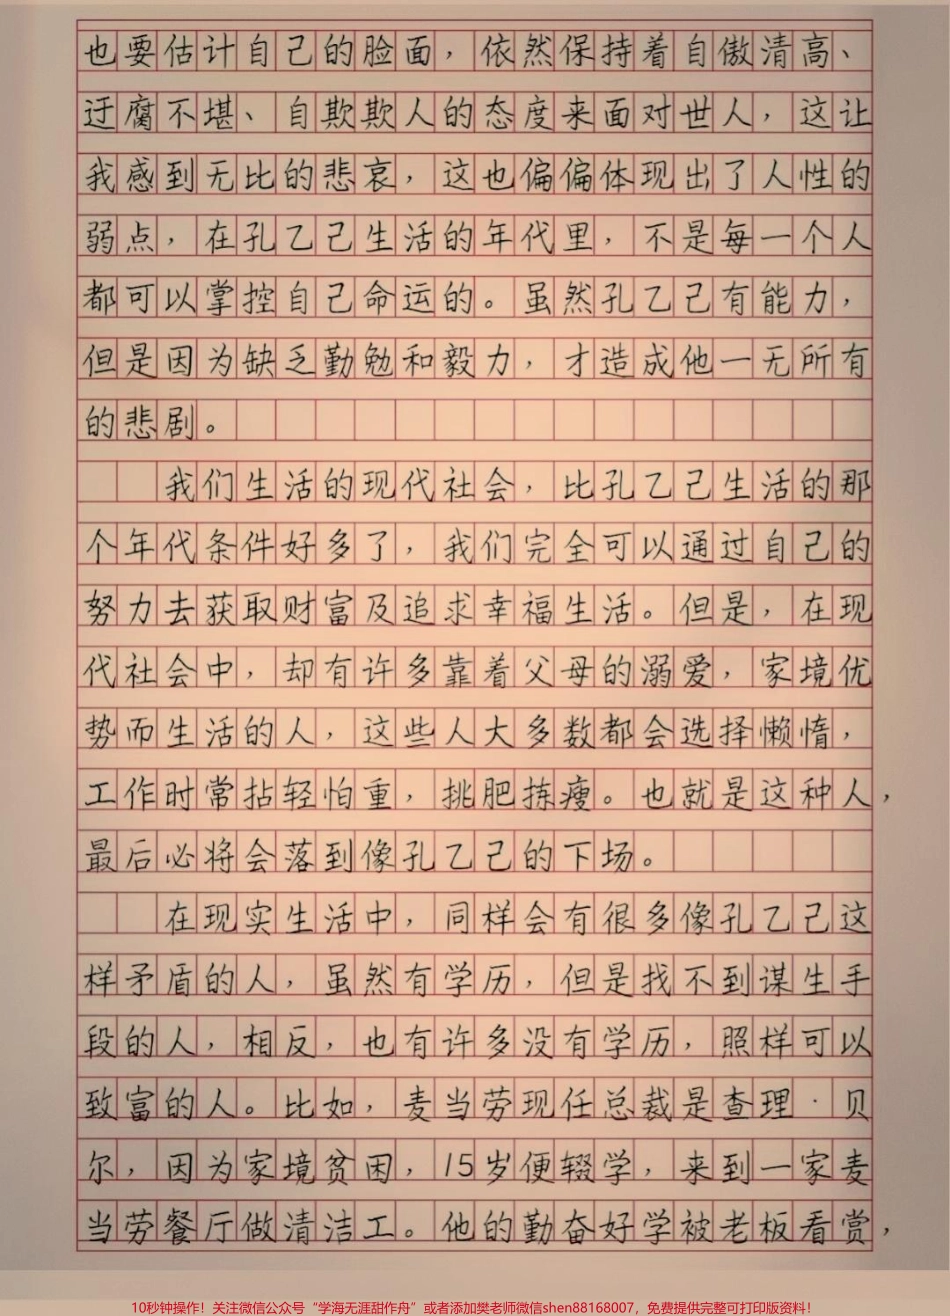 也要估计自己的脸面，依然保持着自傲清高、
迂腐不堪、自欺欺人的态度来面对世人，这让
我感到无比的悲哀，这也偏偏体现出了人性的
弱点，在孔乙己生活的年代里，不是每一个人
都可以掌控自己命运的。虽然孔乙己有能力，
但是因为缺乏勤勉和毅力，才造成他一无所有
的悲剧。
我们生活的现代社会，比孔乙己生活的那
个年代条件好多了，我们完全可以通过自己的
努力去获取财富及追求幸福生活。但是，在现
代社会中，却有许多靠着父母的溺爱，家境优
势而生活的人，这些人大多数都会选择懒惰，
工作时常拈轻怕重，挑肥拣瘦。也就是这种人，
最后必将会落到像孔乙己的下场。
在现实生活中，同样会有很多像孔乙己这
样矛盾的人，虽然有学历，但是找不到谋生手
段的人，相反，也有许多没有学历，照样可以
致富的人。比如，麦当劳现任总裁是查理·贝
尔，因为家境贫困，15岁便辍学，来到一家麦
当劳餐厅做清洁工。他的勤奋好学被老板看赏，
10秒钟操作！关注微信公众号“学海无涯甜作舟”或者添加樊老师微信shen88168007，免费提供完整可打印版资料！